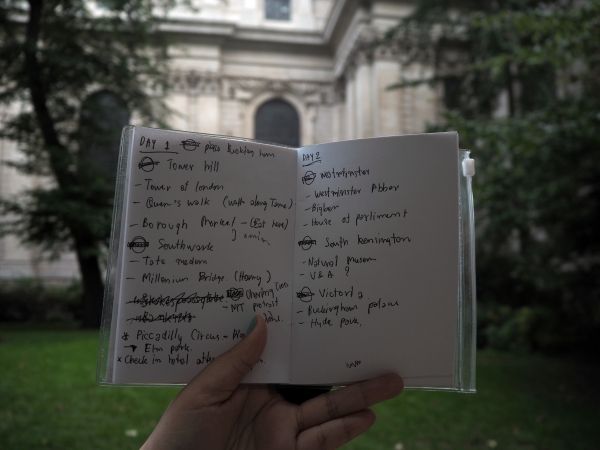 DAY 1
Tower hill
- Tower of london
- Queen's walk (walk along Tame)
- Borough Market - (Eat here)
2 min
Southwark
- Tate modern
- Millenium Bridge (Harry)
Charing Cross
- NAT portrait
* Piccadilly Circus -
Elm park.
x Check in hotel
DAY 2
Westminster
- Westminster Abbey
- Bigben
- House of parliment
South kensington
- Natural Museum
- V & A ?
Victoria
- Buckingham palace
- Hyde park.